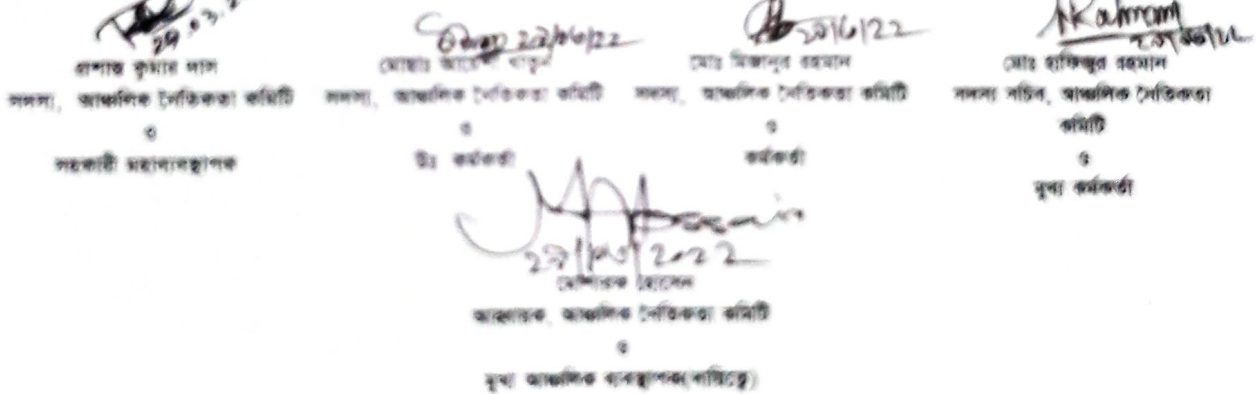 29.03.2
কুমার দাস
সদস্য, আঞ্চলিক নৈতিকতা কমিটি
ও
সহকারী মহাব্যবস্থাপক
২৯/০৬/22
সদস্য, আঞ্চলিক নৈতিকতা কমিটি
ও
উঃ কর্মকর্তা
২৯/6/22
মোঃ মিজানুর রহমান
সদস্য, আঞ্চলিক নৈতিকতা কমিটি
ও
কর্মকর্তা
মোঃ রহমান
সদস্য সচিব, আঞ্চলিক নৈতিকতা
কমিটি
ও
মূখ্য কর্মকর্তা
2022
হোসেন
আহ্বায়ক, আঞ্চলিক নৈতিকতা কমিটি
ও
মূখ্য আঞ্চলিক ব্যবস্থাপক(দায়িত্বে)